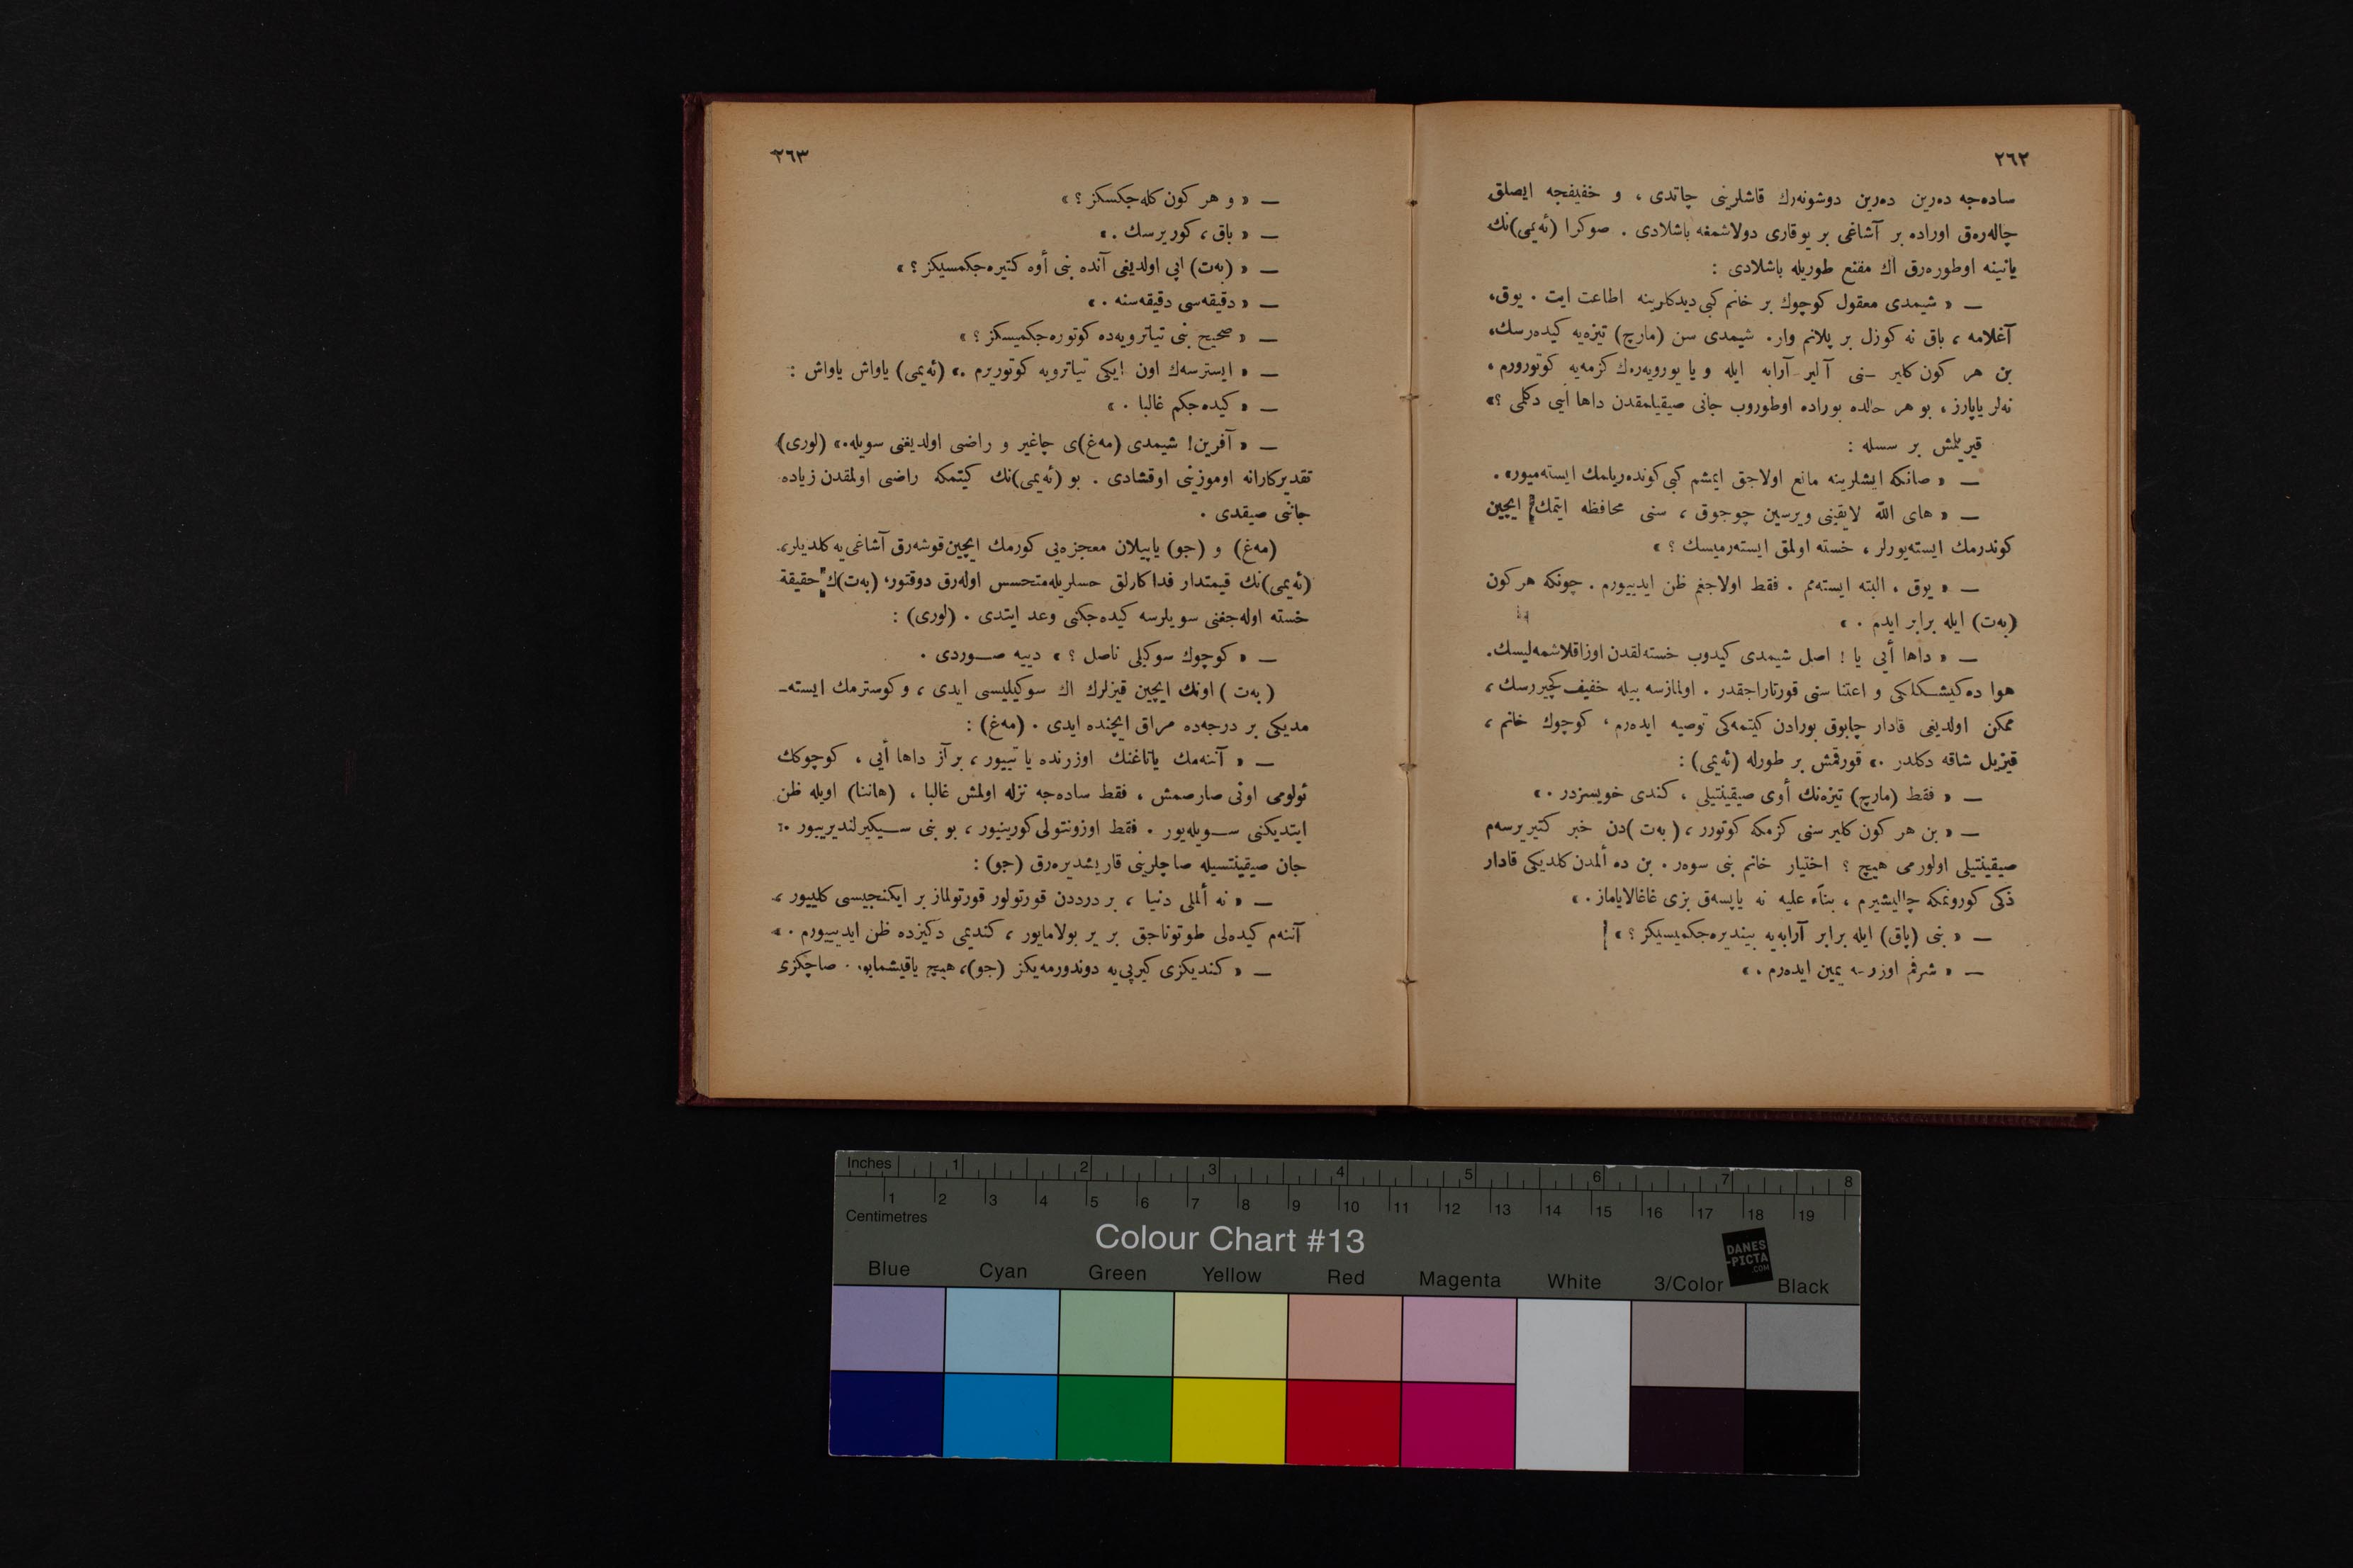 ٢٦٢
ساده‌جه ده‌رین ده‌رین دوشونه‌رك قاشلرینی چاتدی ، و خفیفجه ایصلق
چاله‌ره‌ق اوراده بر آشاغی بر یوقاری دولاشمغه باشلادی . صوكرا (ئه‌یمی)نك
یانینه اوطوره‌رق اك مقنع طوریله باشلادی :
— « شیمدی معقول كوچوك بر خانم كبی دیدكلرینه اطاعت ایت . یوق،
آغلامه ، باق نه كوزل بر پلانم وار. شیمدی سن (مارچ) تیزه‌یه كیده‌رسك،
بن هر كون كلیر سنی آلیر آرابه ایله و یا یورویه‌رك كزمه‌یه كوتورورم .
نه‌لر یاپارز ، بو هر حالده بوراده اوطوروب جانی صیقیلمقدن داها أیی دكلمی ؟»
قیریلمش بر سسله :
— « صانكه ایشلرینه مانع اولاجق ایمشم كبی كونده‌ریلمك ایسته‌میور» .
— « های الله لایقینی ویرسین چوجوق ، سنی محافظه ایتمك ایچین
كوندرمك ایسته‌یورلر ، خسته اولمق ایسته‌رمیسك ؟ »
— « یوق . البته ایسته‌مم . فقط اولاجغم ظن ایدییورم . چونكه هر كون
(به‌ت) ایله برابر ایدم . »
— « داها أیی یا ! اصل شیمدی كیدوب خسته‌لقدن اوزاقلاشمه‌لیسك.
هوا ده‌كیشكلكی و اعتنا سنی قورتاراجقدر . اولمازسه بیله خفیف كچیررسك ،
ممكن اولدیغی قادار چابوق بورادن كیتمه‌كی توصیه ایده‌رم ، كوچوك خانم ،
قیزیل شاقه دكلدر .» قورقمش بر طورله (ئه‌یمی) :
— « فقط (مارچ) تیزه‌نك أوی صیقینتیلی ، كندی خویسزدر . »
— « بن هر كون كلیر سنی كزمكه كوتورر ، (به‌ت)دن خبر كتیریرسه‌م
صیقینتیلی اولورمی هیچ ؟ اختیار خانم بنی سوه‌ر . بن ده ألمدن كلدیكی قادار
ذكی كورونمكه چالیشیرم ، بناًء علیه نه یاپسه‌ق بزی غاغالایاماز . »
— « بنی (پاق) ایله برابر آرابه‌یه بیندیره‌جكمیسیكز ؟ »
— « شرفم اوزرینه یمین ایده‌رم . »
٢٦٣
— « و هر كون كله‌جكسكز ؟ »
— « باق ، كوریرسك . »
— « (به‌ت) ایی اولدیغی آنده بنی أوه كتیره‌جكمسیكز ؟ »
— « دقیقه‌سی دقیقه‌سنه . »
— « صحیح بنی تیاترویه‌ده كوتوره‌جكمیسكز ؟ »
— « ایسترسه‌ك اون ایكی تیاترویه كوتوریرم .» (ئه‌یمی) یاواش یاواش :
— « كیده‌جكم غالبا . »
— « آفرین! شیمدی (مه‌غ)ی چاغیر و راضی اولدیغنی سویله.» (لوری)
تقدیركارانه اوموزینی اوقشادی . بو (ئه‌یمی)نك كیتمكه راضی اولمقدن زیاده
جاننی صیقدی .
(مه‌غ) و (جو) یاپیلان معجزه‌یی كورمك ایچین قوشه‌رق آشاغی‌یه كلدیلر،
(ئه‌یمی)نك قیمتدار فداكارلق حسلریله متحسس اوله‌رق دوقتور، (به‌ت)ك حقیقة
خسته اوله‌جغنی سویلرسه كیده‌جكنی وعد ایتدی . (لوری) :
— « كوچوك سوكیلی ناصل ؟ » دییه صوردی .
(به‌ت) اونك ایچین قیزلرك اك سوكیلیسی ایدی ، و كوسترمك ایسته-
مدیكی بر درجه‌ده مراق ایچنده ایدی . (مه‌غ) :
— « آننه‌مك یاتاغنك اوزرنده یاتییور ، بر آز داها أیی ، كوچوكك
ئولومی اونی صارصمش ، فقط ساده‌جه نزله اولمش غالبا ، (هاننا) اویله ظن
ایتدیكنی سویله‌یور . فقط اوزونتولی كورینیور ، بو بنی سیكیرلندیرییور .»
جان صیقینتسیله صاچلرینی قاریشدیره‌رق (جو) :
— « نه ألملی دنیا ، بر درددن قورتولور قورتولماز بر ایكنجیسی كلییور ،
آننه‌م كیده‌لی طوتوناجق بر یر بولامایور ، كندیمی دكیزده ظن ایدییورم . »
— « كندیكزی كیرپی‌یه دوندورمه‌یكز (جو)، هیچ یاقیشمایور . صاچكزی
Inches 1 2 3 4 5 6 7 8
1 2 3 4 5 6 7 8 9 10 11 12 13 14 15 16 17 18 19
Centimetres
Colour Chart #13
DANES
-PICTA
.COM
Blue Cyan Green Yellow Red Magenta White 3/Color Black